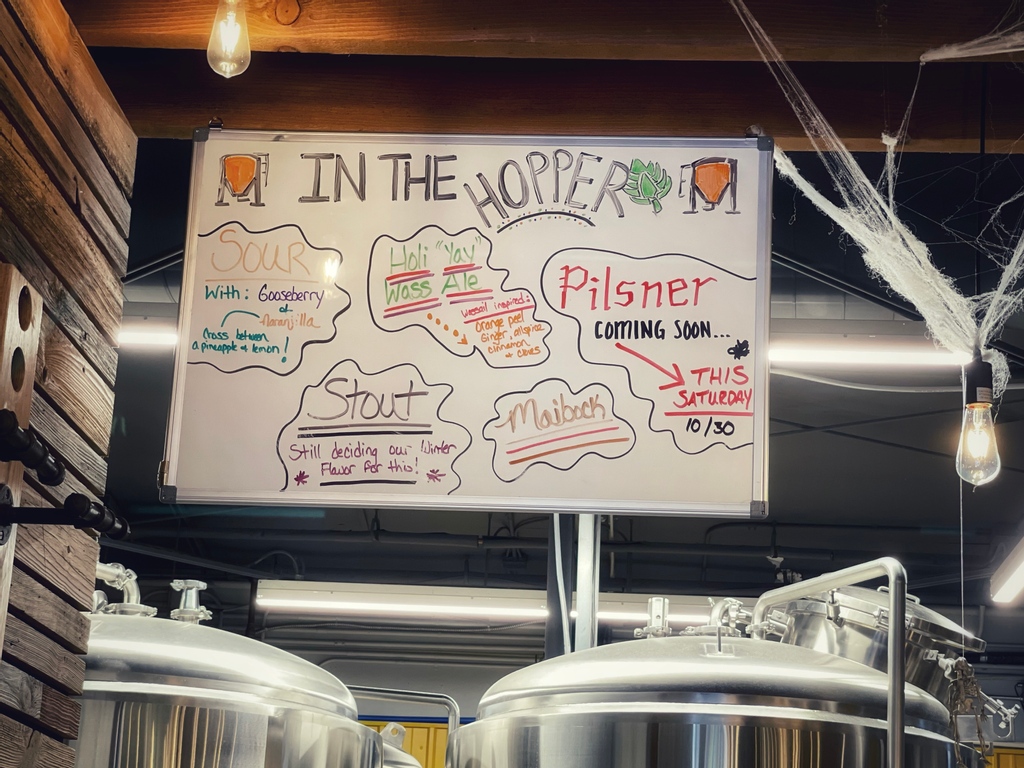 IN THE HOPPER
SOUR
With: Gooseberry
&
Naranjilla
Cross between
a pineapple & lemon!
Holi "Yay"
Wass Ale
Wassail inspired:
Orange peel
Ginger, allspice
cinnamon
& cloves
Pilsner
COMING SOON...
THIS
SATURDAY
10/30
Stout
Still deciding our Winter
Flavor for this!
Maibock